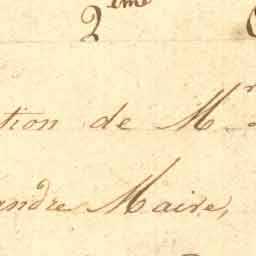 2ème
tion de Mr
andre Maire,